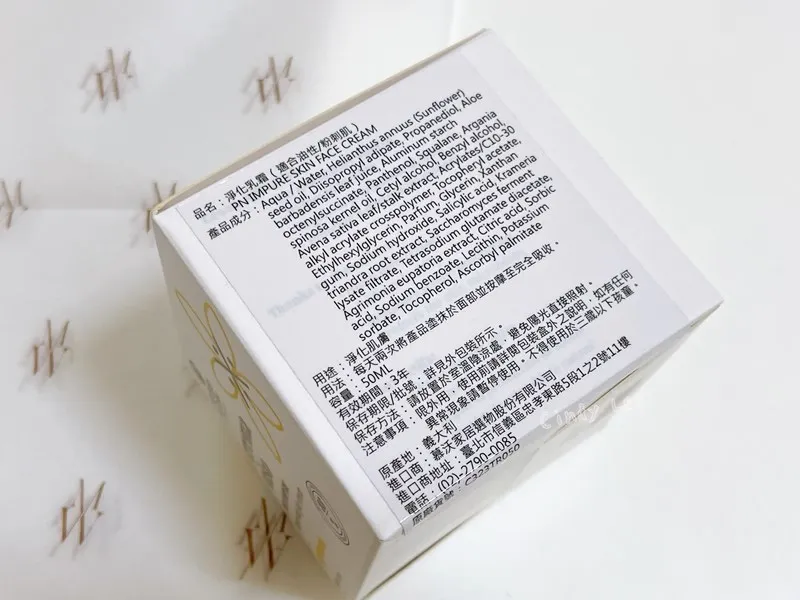 品名：淨化乳霜（適合油性/粉刺肌）
PN IMPURE SKIN FACE CREAM
產品成分：Aqua / Water, Helianthus annuus (Sunflower)
seed oil, Diisopropyl adipate, Propanediol, Aloe
barbadensis leaf juice, Aluminum starch
octenylsuccinate, Panthenol, Squalane, Argania
spinosa kernel oil, Cetyl alcohol, Benzyl alcohol,
Avena sativa leaf/stalk extract, Acrylates/C10-30
alkyl acrylate crosspolymer, Tocopheryl acetate,
Ethylhexylglycerin, Parfum, Glycerin, Xanthan
gum, Sodium hydroxide, Salicylic acid, Krameria
triandra root extract, Saccharomyces ferment
lysate filtrate, Tetrasodium glutamate diacetate,
Agrimonia eupatoria extract, Citric acid, Sorbic
acid, Sodium benzoate, Lecithin, Potassium
sorbate, Tocopherol, Ascorbyl palmitate
用途：淨化肌膚
用法：每天兩次將產品塗抹於面部並按摩至完全吸收。
容量：50ML
有效期間：3年
保存期限/批號：詳見外包裝所示。
保存方法：請放置於室溫陰涼處，避免陽光直接照射。
注意事項：限外用，使用前請詳閱包裝盒外之說明，如有任何
異常現象請暫停使用。不得使用於三歲以下孩童。
原產地：義大利
進口商：慕沃家居選物股份有限公司
進口商地址：臺北市信義區忠孝東路5段1之2號11樓
電話：(02)-2790-0085
原廠貨號：C323TR050